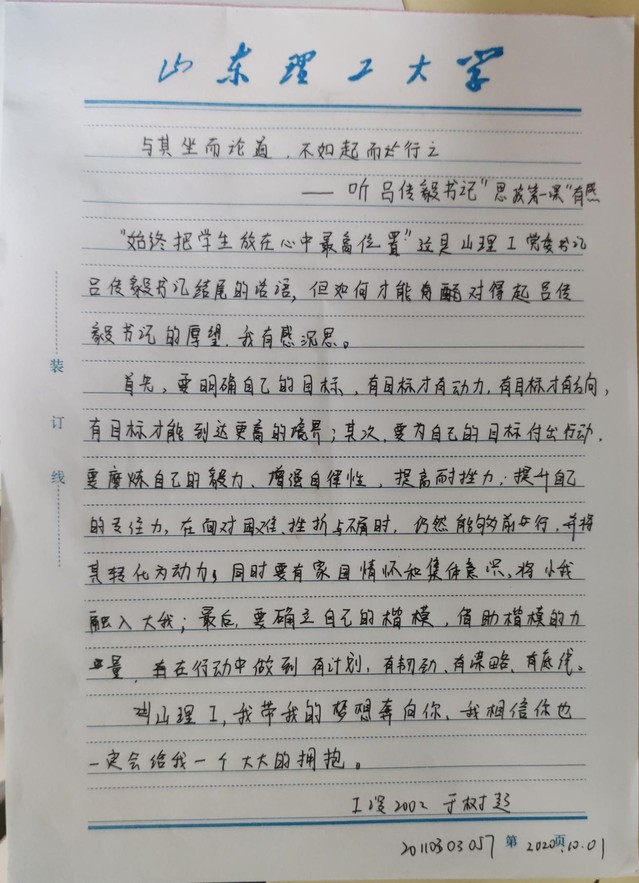 山东理工大学
与其坐而论道，不如起而行之
——听吕传毅书记"思政第一课"有感
"始终把学生放在心中最高位置"这是山理工党委书记
吕传毅书记结尾的话语，但如何才能对得起吕传
毅书记的厚望，我有感沉思。
首先，要明确自己的目标，有目标才有动力，有目标才有方向，
有目标才能到达更高的境界；其次，要为自己的目标付出行动，
要磨炼自己的毅力、增强自律性，提高耐挫力；提升自己
的专注力，在面对困难、挫折与磨时，仍然能够前行，并将
其转化为动力；同时要有家国情怀和集体意识，将小我
融入大我；最后，要确立自己的楷模，借助楷模的力
量，在行动中做到有计划，有韧劲、有谋略、有底线。
到山理工，我带我的梦想奔向你，我相信你也
一定会给我一个大大的拥抱。
工设2002 于树超
20110303057 第 页 2020.10.01
装
订
线